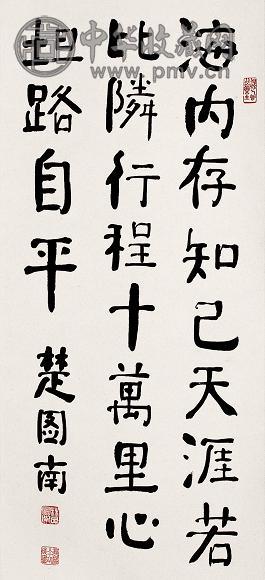 海内存知己天涯若
比隣行程十萬里心
坦路自平
楚图南
中华收藏网
www.pmv.cn